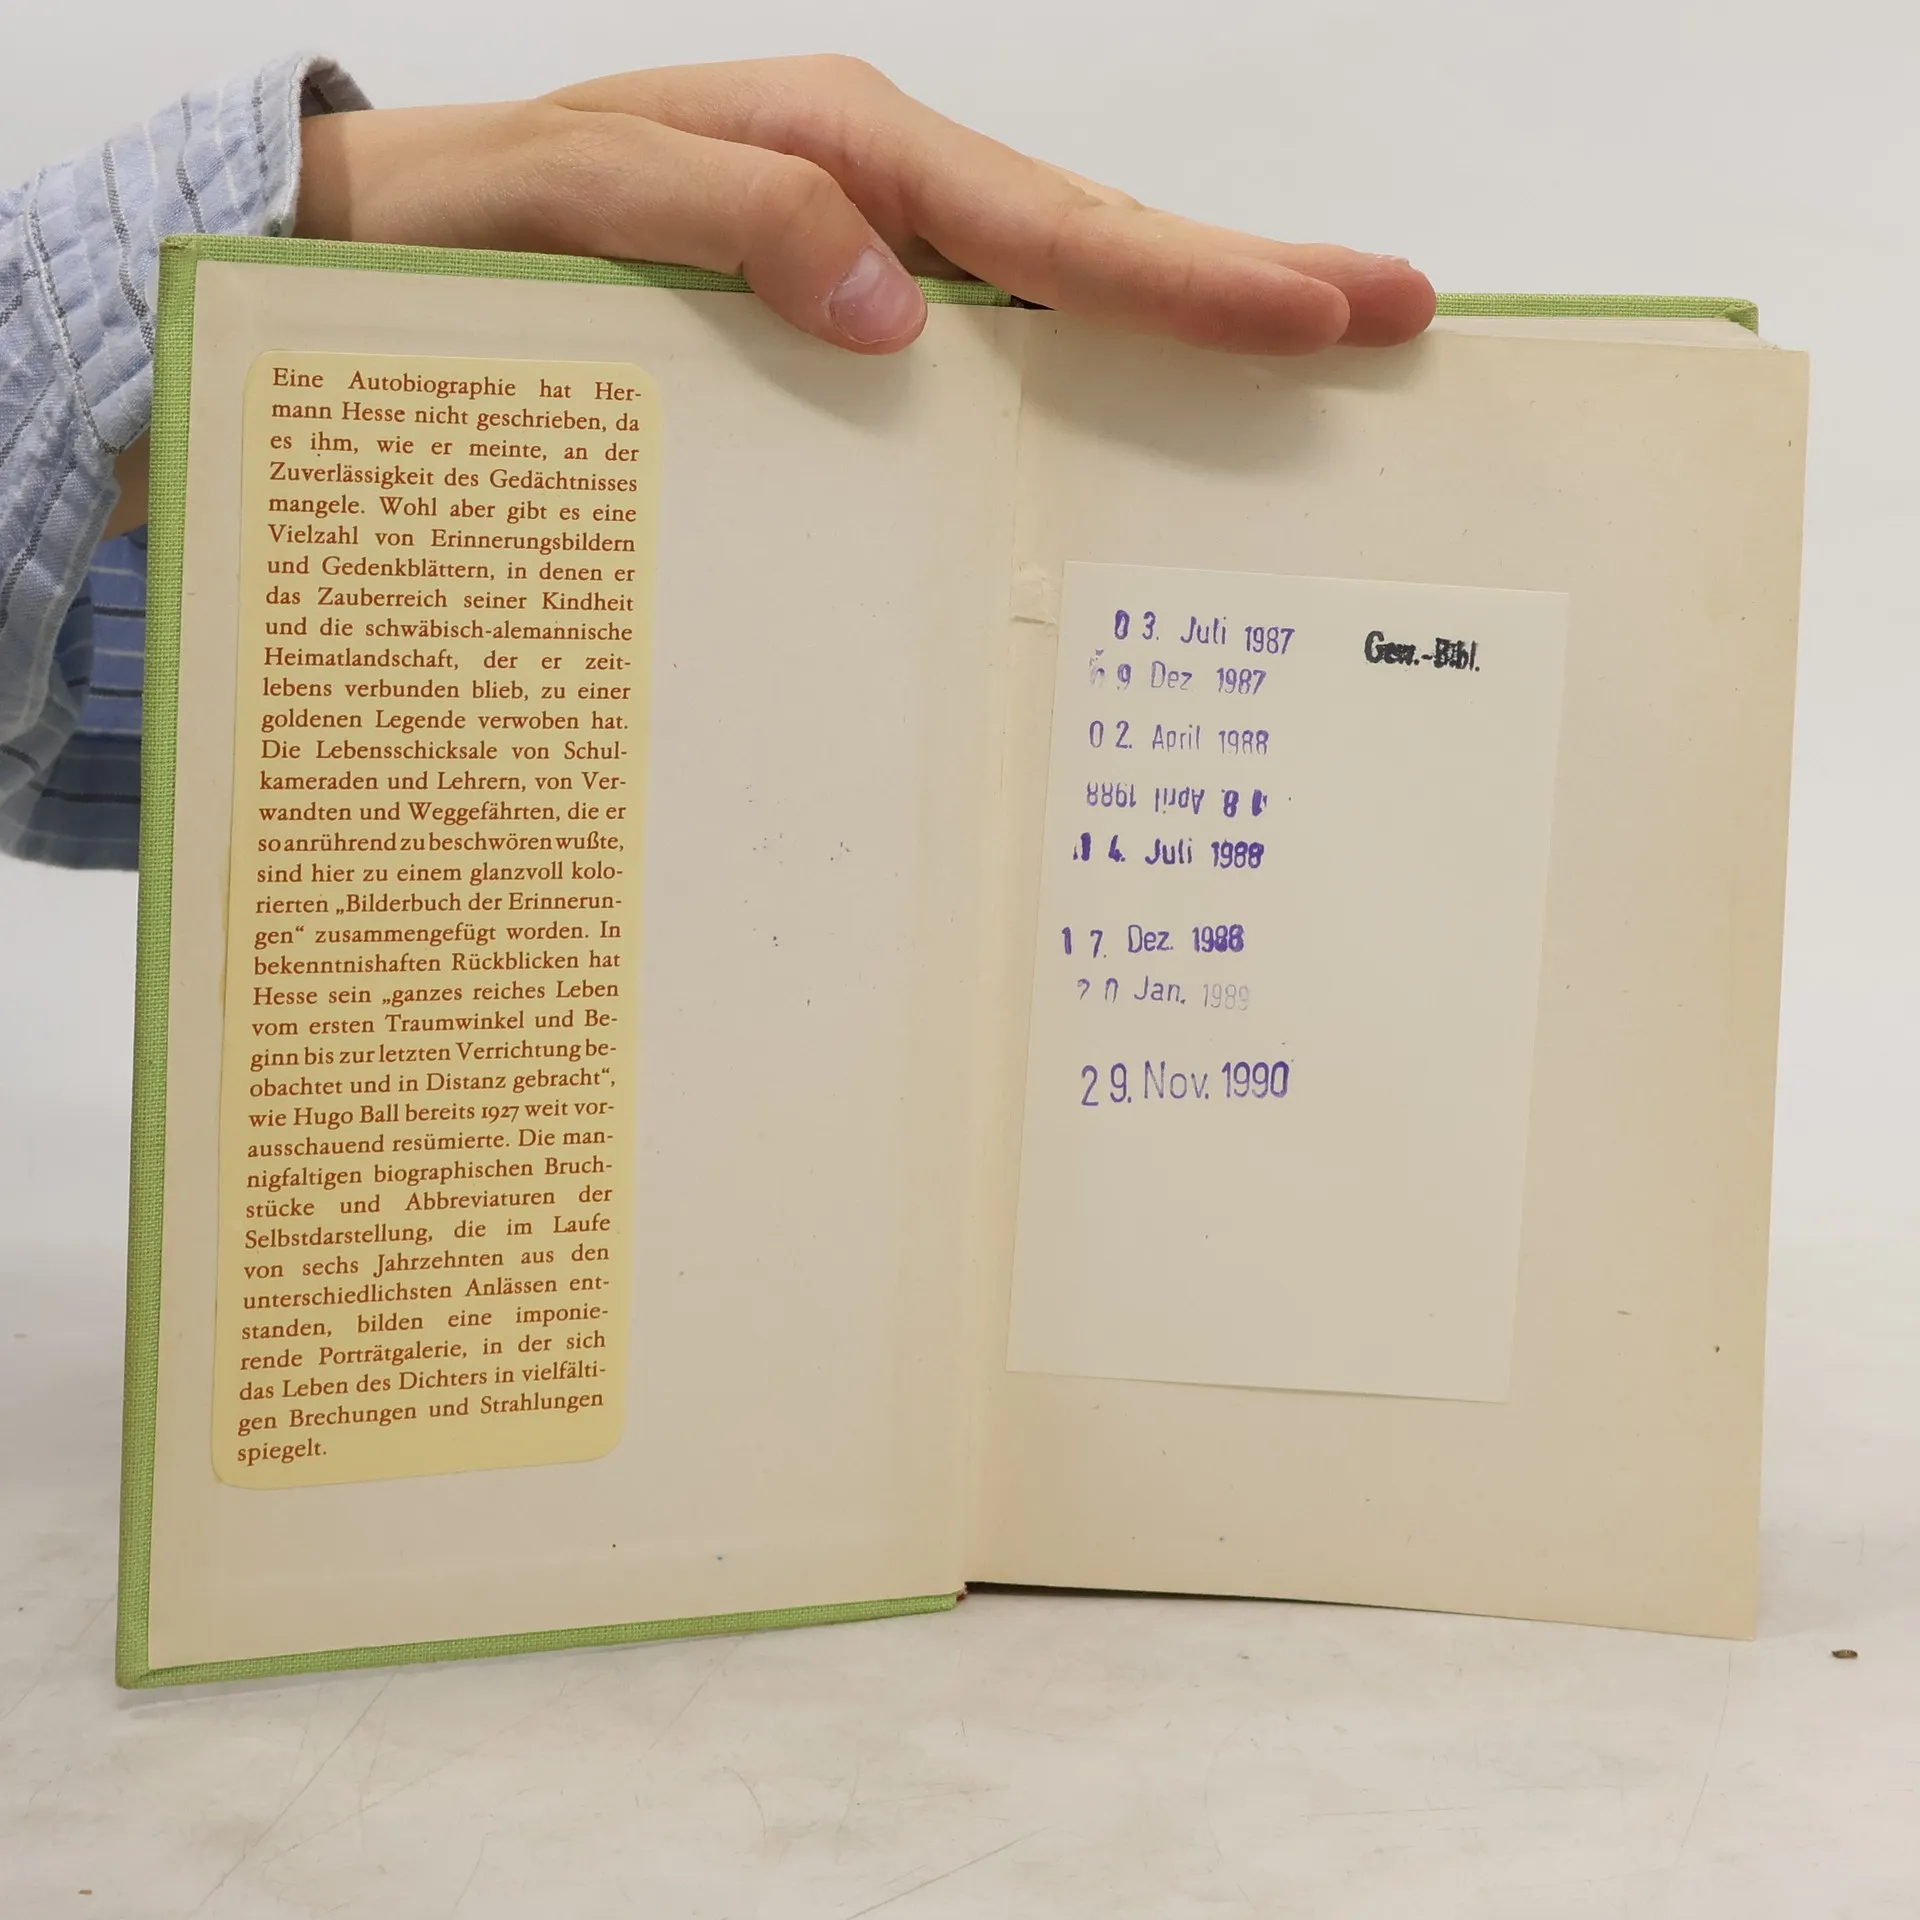 Eine Autobiographie hat Her-
mann Hesse nicht geschrieben, da
es ihm, wie er meinte, an der
Zuverlässigkeit des Gedächtnisses
mangele. Wohl aber gibt es eine
Vielzahl von Erinnerungsbildern
und Gedenkblättern, in denen er
das Zauberreich seiner Kindheit
und die schwäbisch-alemannische
Heimatlandschaft, der er zeit-
lebens verbunden blieb, zu einer
goldenen Legende verwoben hat.
Die Lebensschicksale von Schul-
kameraden und Lehrern, von Ver-
wandten und Weggefährten, die er
so anrührend zu beschwören wußte,
sind hier zu einem glanzvoll kolo-
rierten „Bilderbuch der Erinnerun-
gen“ zusammengefügt worden. In
bekenntnishaften Rückblicken hat
Hesse sein „ganzes reiches Leben
vom ersten Traumwinkel und Be-
ginn bis zur letzten Verrichtung be-
obachtet und in Distanz gebracht“,
wie Hugo Ball bereits 1927 weit vor-
ausschauend resümierte. Die man-
nigfaltigen biographischen Bruch-
stücke und Abbreviaturen der
Selbstdarstellung, die im Laufe
von sechs Jahrzehnten aus den
unterschiedlichsten Anlässen ent-
standen, bilden eine imponie-
rende Porträtgalerie, in der sich
das Leben des Dichters in vielfälti-
gen Brechungen und Strahlungen
spiegelt.
03. Juli 1987
Gew.-Bibl.
9 Dez 1987
02. April 1988
18. April 1988
14. Juli 1988
17. Dez. 1988
20 Jan. 1989
29. Nov. 1990